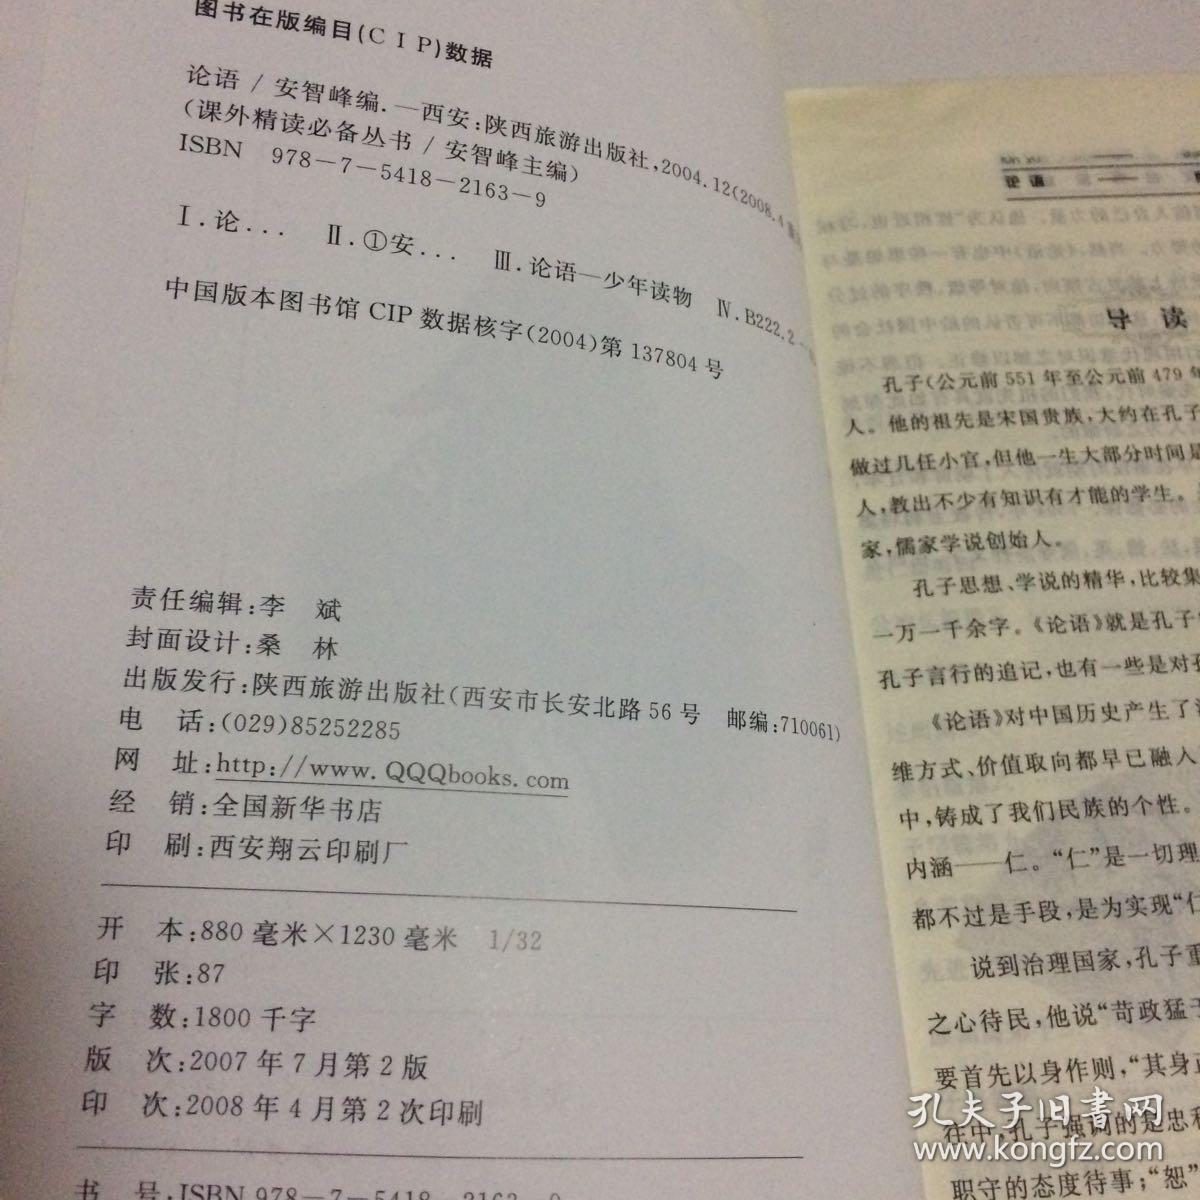 图书在版编目(CIP)数据
论语 / 安智峰编. —西安:陕西旅游出版社,2004.12(2008.4
(课外精读必备丛书 / 安智峰主编)
ISBN 978-7-5418-2163-9
Ⅰ.论... Ⅱ.①安... Ⅲ.论语—少年读物 Ⅳ.B222.2
中国版本图书馆 CIP 数据核字(2004)第 137804 号
责任编辑:李 斌
封面设计:桑 林
出版发行:陕西旅游出版社(西安市长安北路 56 号 邮编:710061)
电 话:(029)85252285
网 址:http://www.QQQbooks.com
经 销:全国新华书店
印 刷:西安翔云印刷厂
开 本:880 毫米×1230 毫米 1/32
印 张:87
字 数:1800 千字
版 次:2007 年 7 月第 2 版
印 次:2008 年 4 月第 2 次印刷
书 号:ISBN 978-7-5418-2163-9
论语
导 读
孔子(公元前 551 年至公元前 479 年
人。他的祖先是宋国贵族,大约在孔子
做过几任小官,但他一生大部分时间是
人,教出不少有知识有才能的学生。
家,儒家学说创始人。
孔子思想、学说的精华,比较集
一万一千余字。《论语》就是孔子
孔子言行的追记,也有一些是对孔
《论语》对中国历史产生了
维方式、价值取向都早已融入
中,铸成了我们民族的个性。
内涵——仁。“仁”是一切理
都不过是手段,是为实现“仁
说到治理国家,孔子重
之心待民,他说“苛政猛于
要首先以身作则,“其身正
往中,孔子强调的是忠和
职守的态度待事;“恕”
孔夫子旧书网
www.kongfz.com